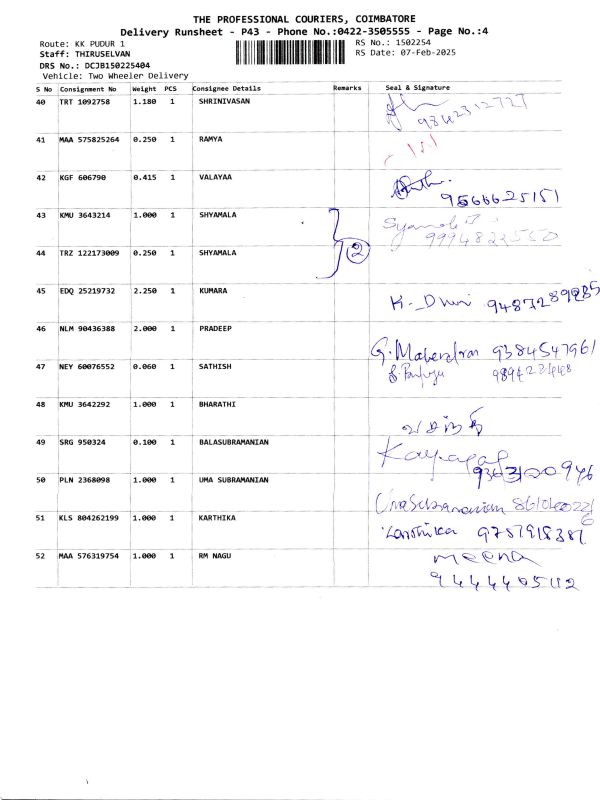 THE PROFESSIONAL COURIERS, COIMBATORE
Delivery Runsheet - P43 - Phone No.:0422-3505555 - Page No.:4
Route: KK PUDUR 1
RS No.: 1502254
Staff: THIRUSELVAN
RS Date: 07-Feb-2025
DRS No.: DCJB150225404
Vehicle: Two Wheeler Delivery
S No Consignment No Weight PCS Consignee Details Remarks Seal & Signature
40 TRT 1092758 1.180 1 SHRINIVASAN
9842312727
41 MAA 575825264 0.250 1 RAMYA
42 KGF 606790 0.415 1 VALAYAA
9566625151
43 KMU 3643214 1.000 1 SHYAMALA
9994823550
44 TRZ 122173009 0.250 1 SHYAMALA 2
45 EDQ 25219732 2.250 1 KUMARA
46 NLM 90436388 2.000 1 PRADEEP
G. Mahendran 9384547961
47 NEY 60076552 0.060 1 SATHISH
48 KMU 3642292 1.000 1 BHARATHI
49 SRG 950324 0.100 1 BALASUBRAMANIAN
50 PLN 2368098 1.000 1 UMA SUBRAMANIAN
51 KLS 804262199 1.000 1 KARTHIKA
Karthika
52 MAA 576319754 1.000 1 RM NAGU meena